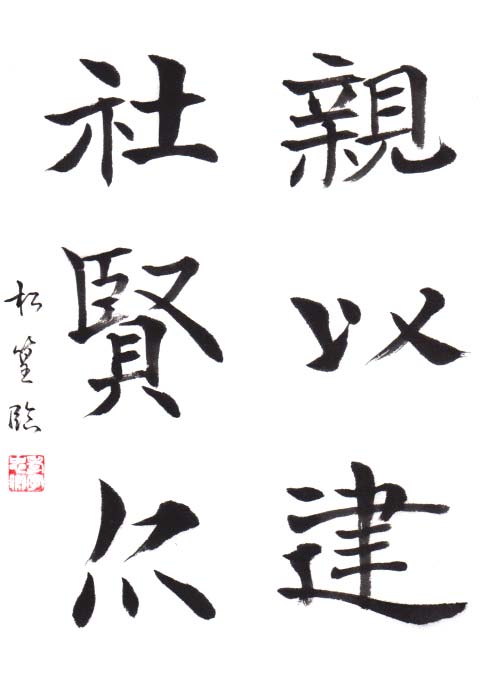 親以建
社賢尒
松篁臨